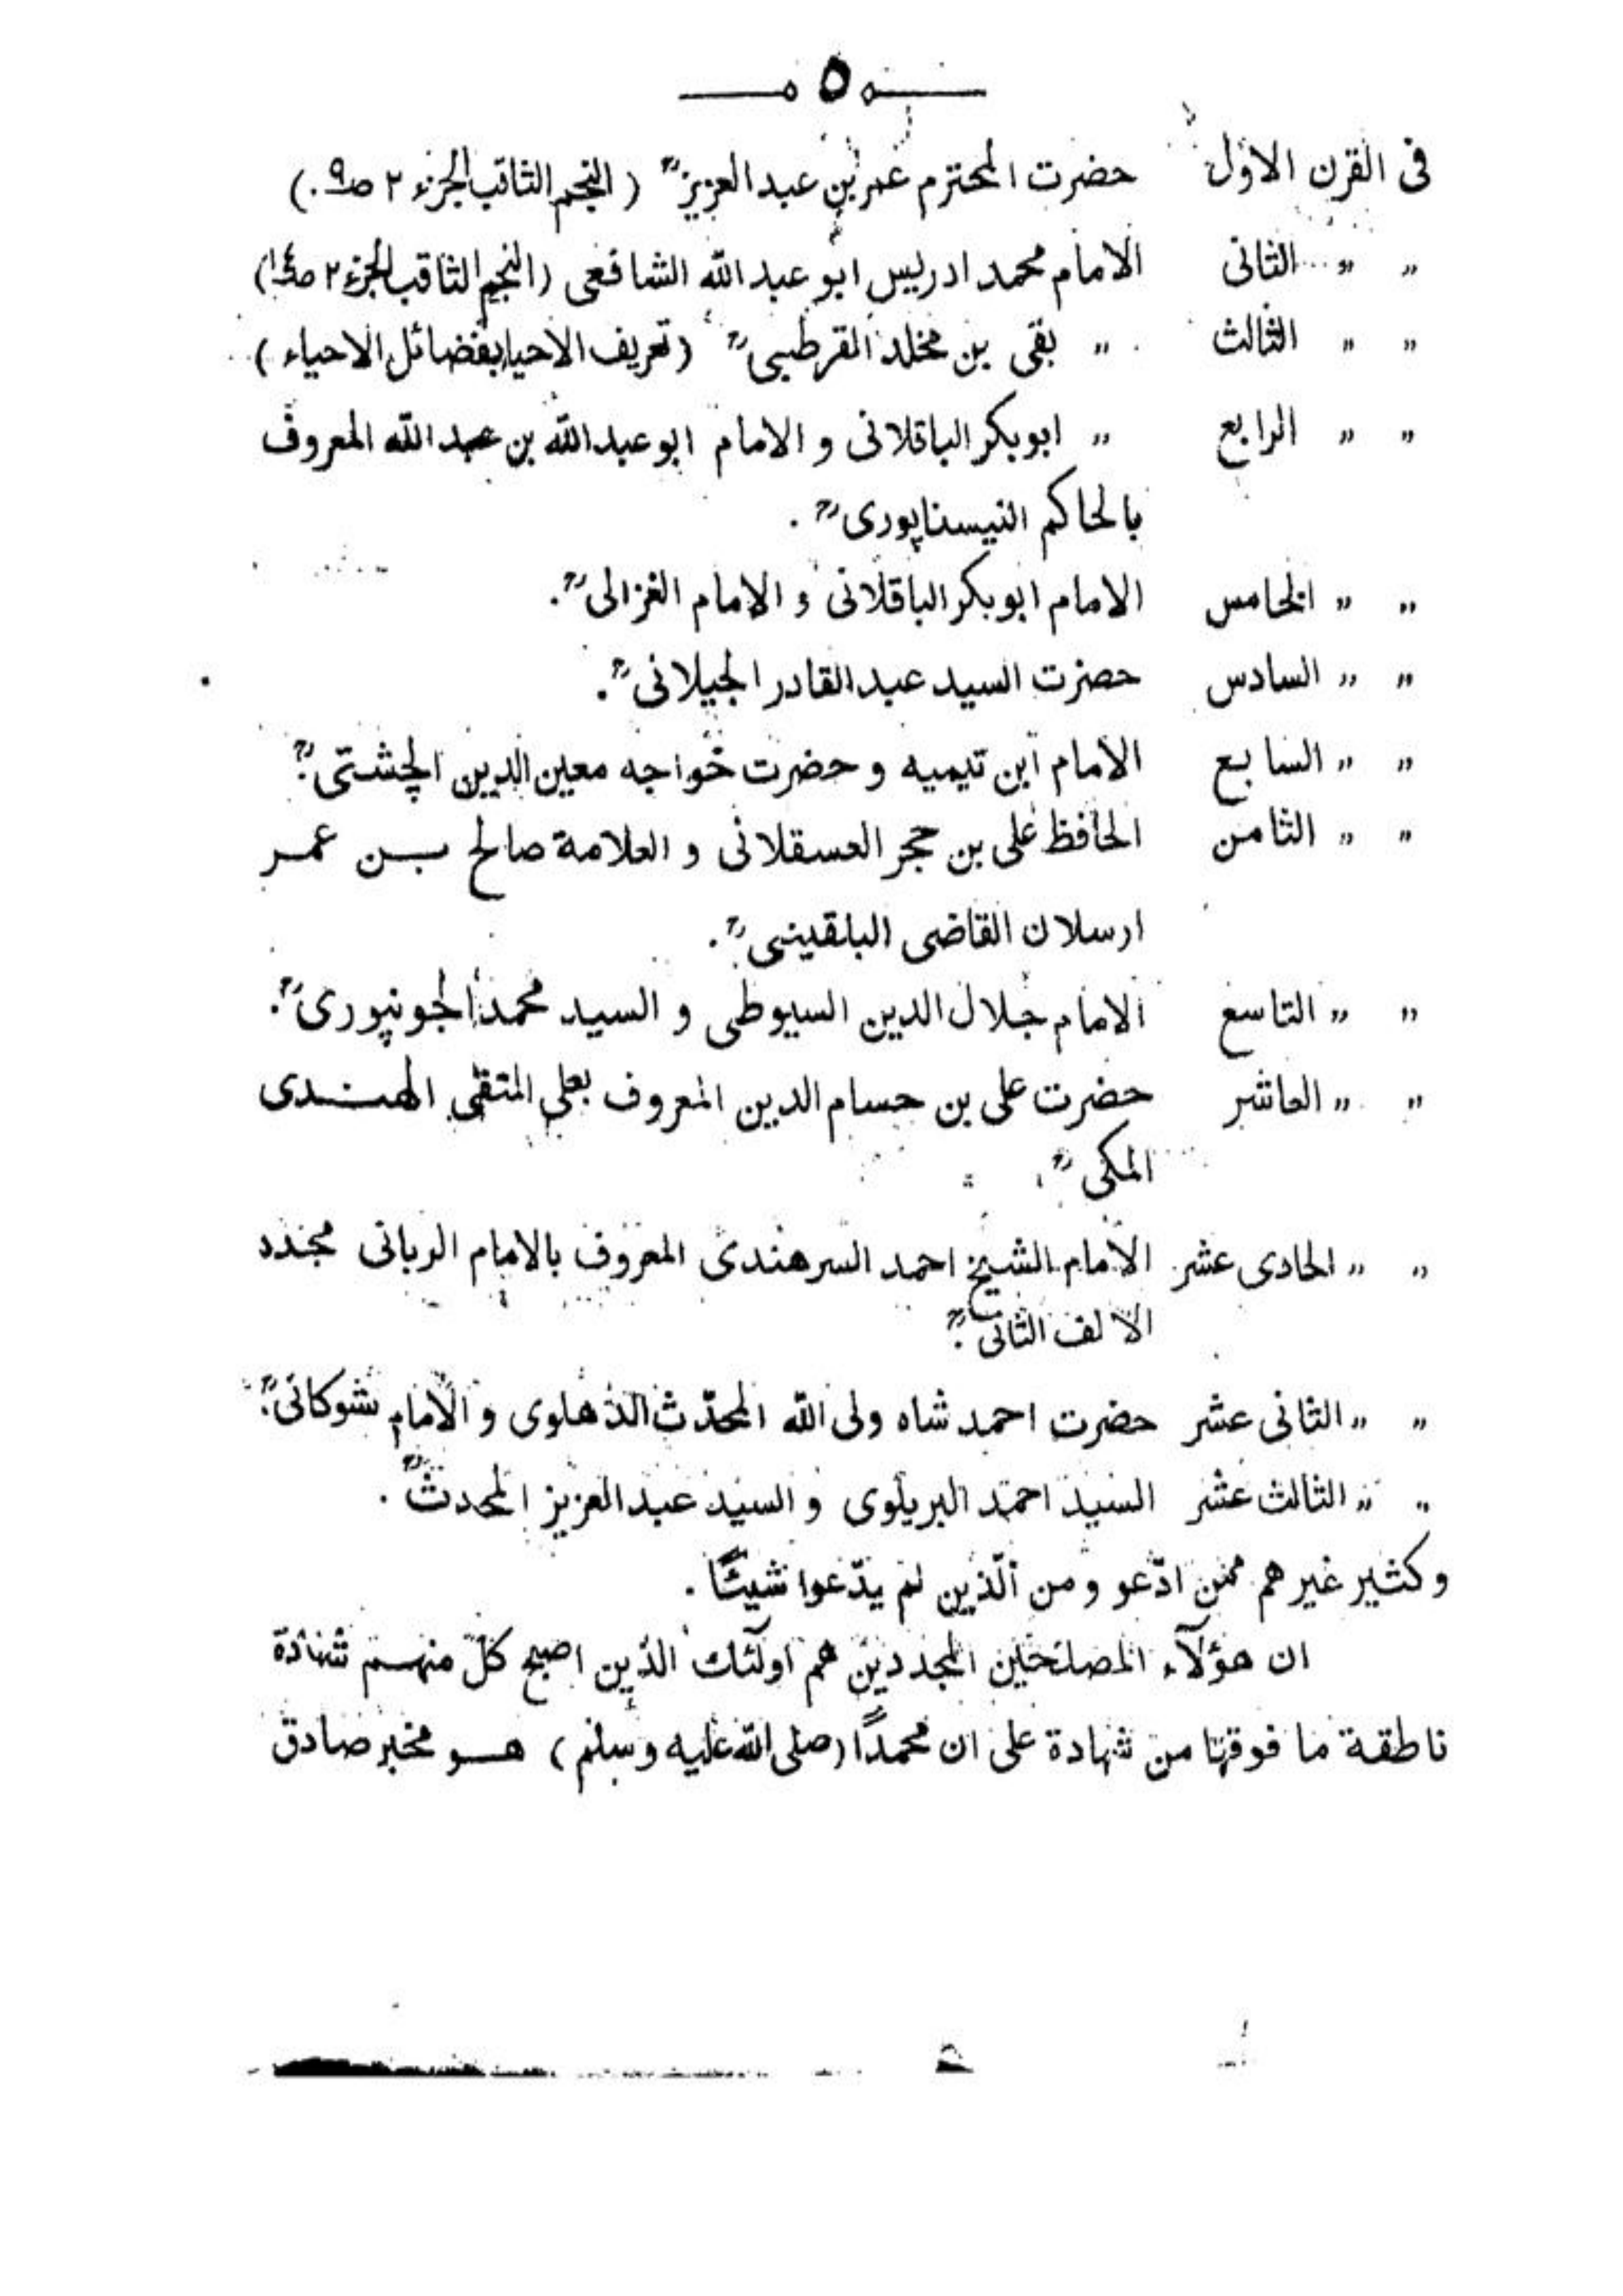 ٥
فى القرن الاول حضرت المحترم عمر بن عبد العزيزؒ ( النجم الثاقب الجزء ٢ صـ٩ . )
〃 〃 الثانى الامام محمد ادريس ابو عبد الله الشافعى ( النجم الثاقب الجزء ٢ صـ١٤ )
〃 〃 الثالث 〃 بقى بن مخلد القرطبىؒ ( تعريف الاحياء بفضائل الاحياء )
〃 〃 الرابع 〃 ابوبكر الباقلانى و الامام ابو عبد الله بن عبد الله المعروف
بالحاكم النيسناپورىؒ .
〃 〃 الخامس الامام ابوبكر الباقلانى و الامام الغزالىؒ .
〃 〃 السادس حضرت السيد عبد القادر الجيلانىؒ .
〃 〃 السابع الامام ابن تيميه و حضرت خواجه معين الدين الچشتىؒ .
〃 〃 الثامن الحافظ على بن حجر العسقلانى و العلامة صالح بن عمر
ارسلان القاضى البلقينىؒ .
〃 〃 التاسع الامام جلال الدين السيوطى و السيد محمد الجونپورىؒ .
〃 〃 العاشر حضرت على بن حسام الدين المعروف بعلى المتقى الهندى
المكىؒ .
〃 〃 الحادى عشر الامام الشيخ احمد السرهندى المعروف بالامام الربانى مجدد
الالف الثانىؒ .
〃 〃 الثانى عشر حضرت احمد شاه ولى الله المحدّث الدهلوى و الامام شوكانىؒ .
〃 〃 الثالث عشر السيد احمد البريلوى و السيد عبد العزيز المحدثؒ .
وكثير غيرهم ممن ادّعو ومن الّذين لم يدّعوا شيئًا .
ان هؤلآء المصلحين المجددين هم اولٓئك الذين اصبح كلّ منهم شهادة
ناطقة ما فوقها من شهادة على ان محمدًا ( صلى الله عليه وسلم ) هو مخبر صادق